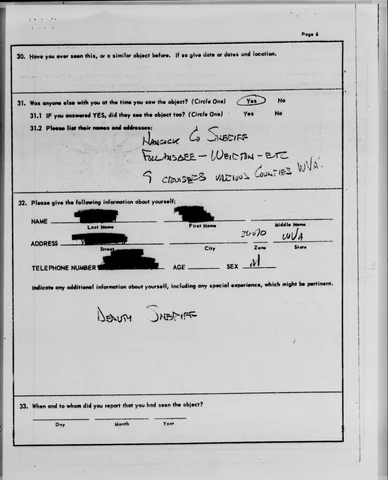 Page 6
30. Have you ever seen this, or a similar object before. If so give date or dates and location.
31. Was anyone else with you at the time you saw the object? (Circle One) Yes No
31.1 IF you answered YES, did they see the object too? (Circle One) Yes No
31.2 Please list their names and addresses:
HANCOCK Co SHERIFF
FOLLANSBEE - WEIRTON - ETC
9 CRUISERS VARIOUS COUNTIES WVA.
32. Please give the following information about yourself:
NAME
Last Name First Name Middle Name
ADDRESS WVA
Street City Zone State
TELEPHONE NUMBER AGE SEX M
Indicate any additional information about yourself, including any special experience, which might be pertinent.
DEPUTY SHERIFF
33. When and to whom did you report that you had seen the object?
Day Month Year